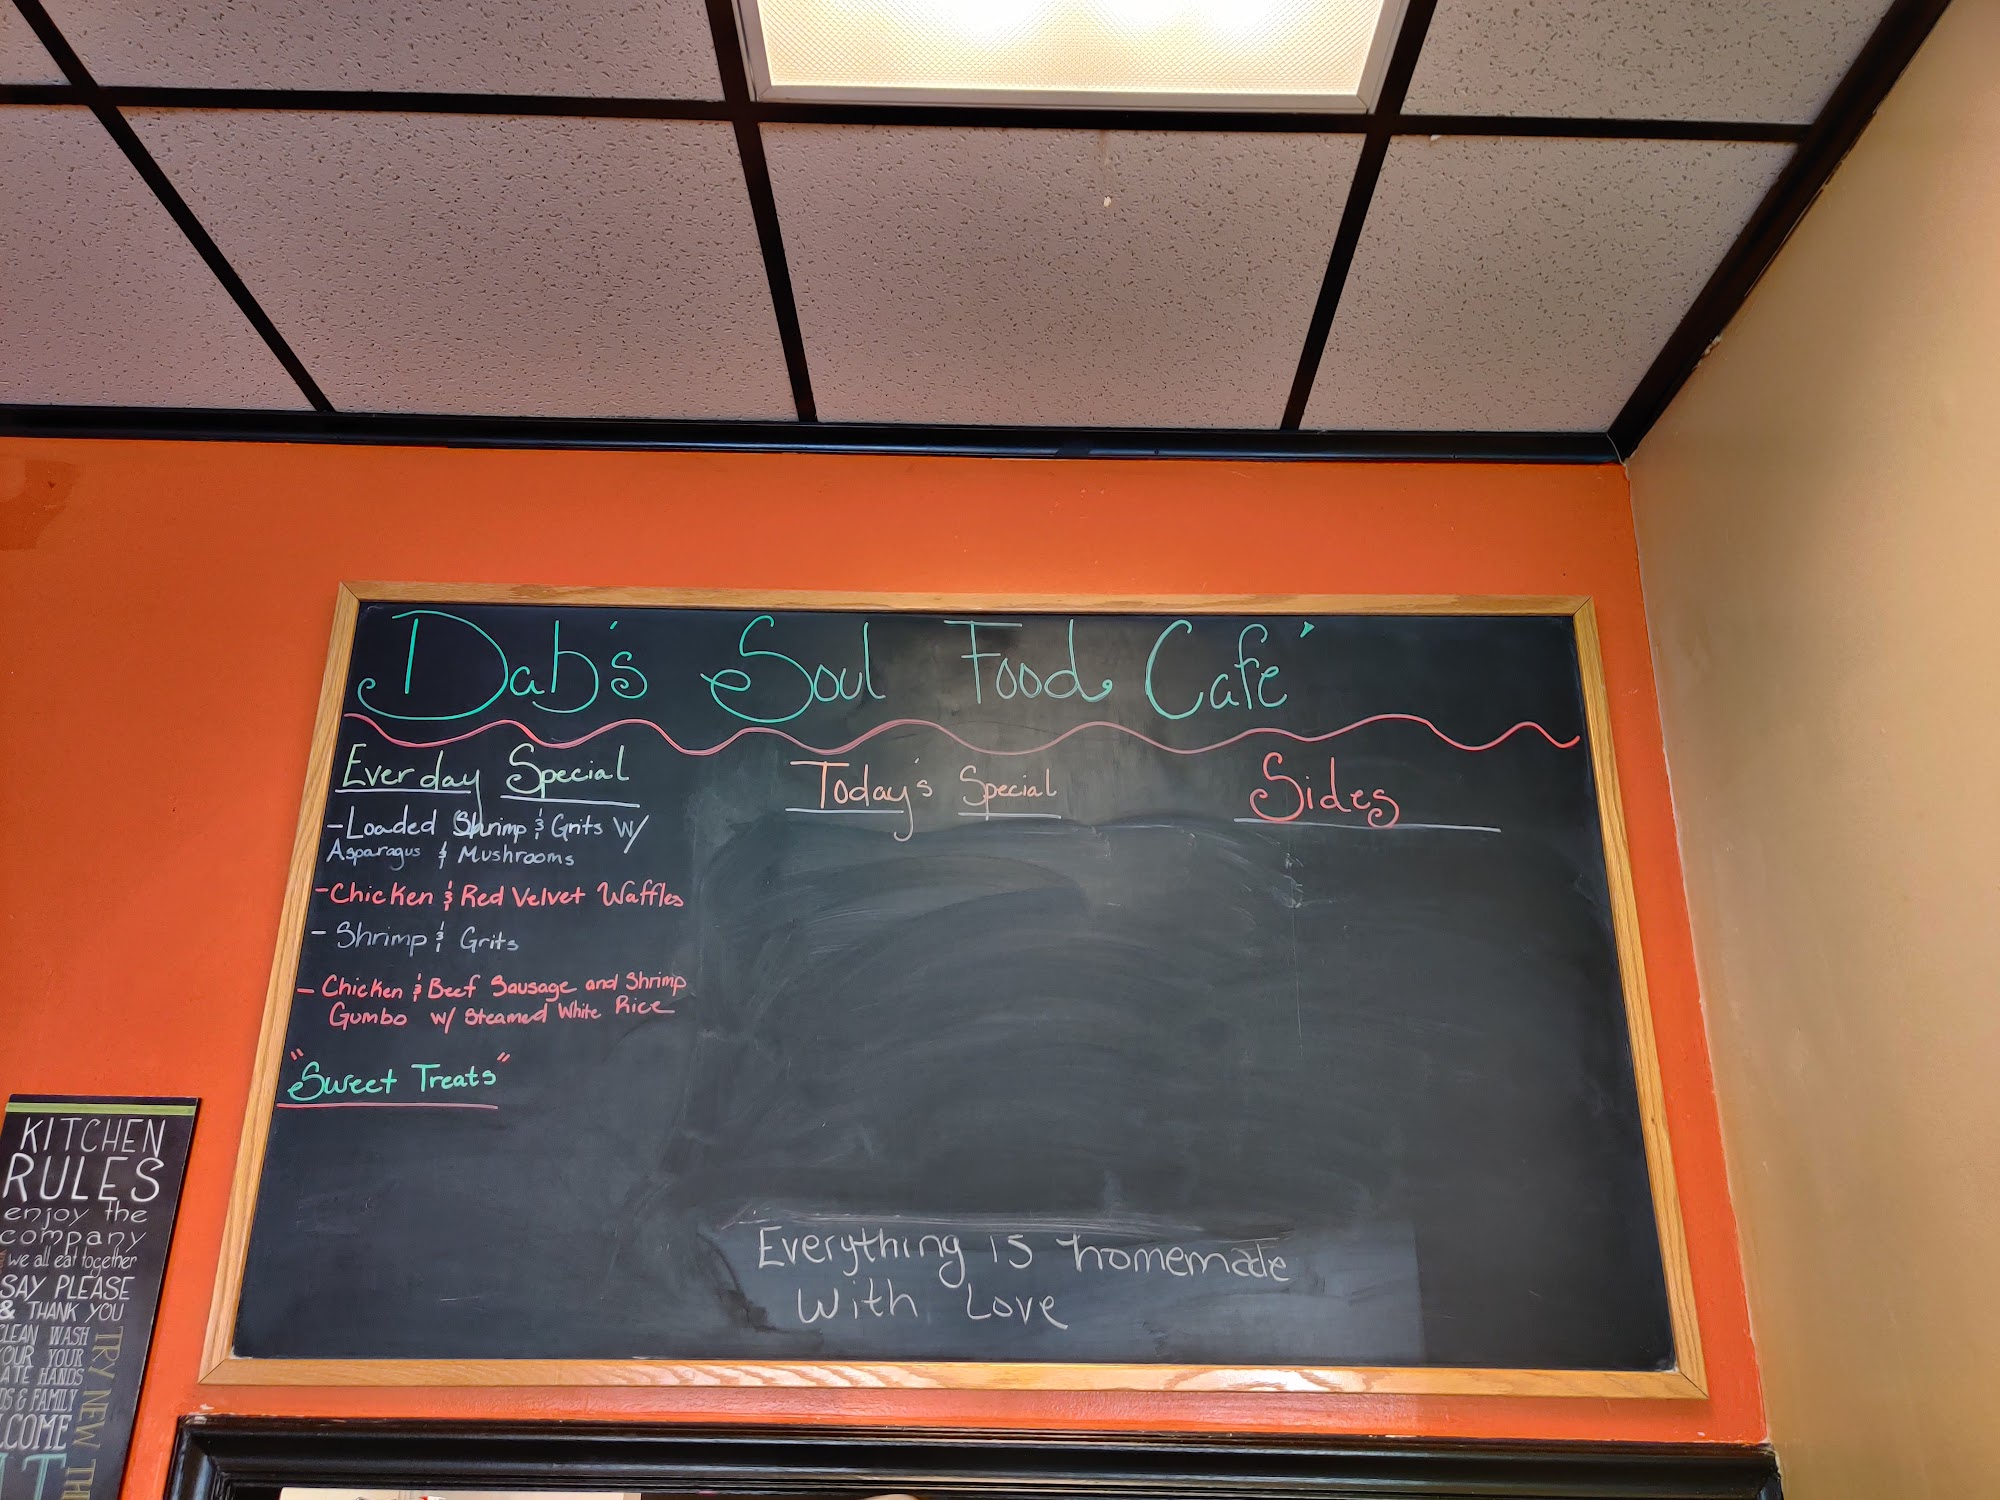 Dab's Soul Food Cafe'
Everday Special
-Loaded Shrimp & Grits w/
Asparagus & Mushrooms
-Chicken & Red Velvet Waffles
- Shrimp & Grits
- Chicken & Beef Sausage and Shrimp
Gumbo w/ Steamed White Rice
"Sweet Treats"
Today's Special
Sides
Everything is homemade
with Love
KITCHEN
RULES
enjoy the
company
we all eat together
SAY PLEASE
& THANK YOU
WASH
YOUR
HANDS
& FAMILY
TRY NEW